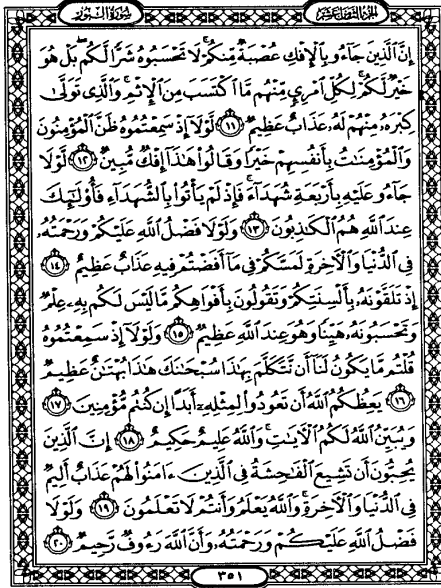 الجزء الثامن عشر سورة النور
إِنَّ الَّذِينَ جَاءُو بِالْإِفْكِ عُصْبَةٌ مِّنكُمْ ۚ لَا تَحْسَبُوهُ شَرًّا لَّكُم ۖ بَلْ هُوَ
خَيْرٌ لَّكُمْ ۚ لِكُلِّ امْرِئٍ مِّنْهُم مَّا اكْتَسَبَ مِنَ الْإِثْمِ ۚ وَالَّذِي تَوَلَّىٰ
كِبْرَهُ مِنْهُمْ لَهُ عَذَابٌ عَظِيمٌ ١١ لَّوْلَا إِذْ سَمِعْتُمُوهُ ظَنَّ الْمُؤْمِنُونَ
وَالْمُؤْمِنَاتُ بِأَنفُسِهِمْ خَيْرًا وَقَالُوا هَٰذَا إِفْكٌ مُّبِينٌ ١٢ لَّوْلَا
جَاءُو عَلَيْهِ بِأَرْبَعَةِ شُهَدَاءَ ۚ فَإِذْ لَمْ يَأْتُوا بِالشُّهَدَاءِ فَأُولَٰئِكَ
عِندَ اللَّهِ هُمُ الْكَاذِبُونَ ١٣ وَلَوْلَا فَضْلُ اللَّهِ عَلَيْكُمْ وَرَحْمَتُهُ
فِي الدُّنْيَا وَالْآخِرَةِ لَمَسَّكُمْ فِي مَا أَفَضْتُمْ فِيهِ عَذَابٌ عَظِيمٌ ١٤
إِذْ تَلَقَّوْنَهُ بِأَلْسِنَتِكُمْ وَتَقُولُونَ بِأَفْوَاهِكُم مَّا لَيْسَ لَكُم بِهِ عِلْمٌ
وَتَحْسَبُونَهُ هَيِّنًا وَهُوَ عِندَ اللَّهِ عَظِيمٌ ١٥ وَلَوْلَا إِذْ سَمِعْتُمُوهُ
قُلْتُم مَّا يَكُونُ لَنَا أَن نَّتَكَلَّمَ بِهَٰذَا سُبْحَانَكَ هَٰذَا بُهْتَانٌ عَظِيمٌ
١٦ يَعِظُكُمُ اللَّهُ أَن تَعُودُوا لِمِثْلِهِ أَبَدًا إِن كُنتُم مُّؤْمِنِينَ ١٧
وَيُبَيِّنُ اللَّهُ لَكُمُ الْآيَاتِ ۚ وَاللَّهُ عَلِيمٌ حَكِيمٌ ١٨ إِنَّ الَّذِينَ
يُحِبُّونَ أَن تَشِيعَ الْفَاحِشَةُ فِي الَّذِينَ آمَنُوا لَهُمْ عَذَابٌ أَلِيمٌ
فِي الدُّنْيَا وَالْآخِرَةِ ۚ وَاللَّهُ يَعْلَمُ وَأَنتُمْ لَا تَعْلَمُونَ ١٩ وَلَوْلَا
فَضْلُ اللَّهِ عَلَيْكُمْ وَرَحْمَتُهُ وَأَنَّ اللَّهَ رَءُوفٌ رَّحِيمٌ ٢٠
٣٥١